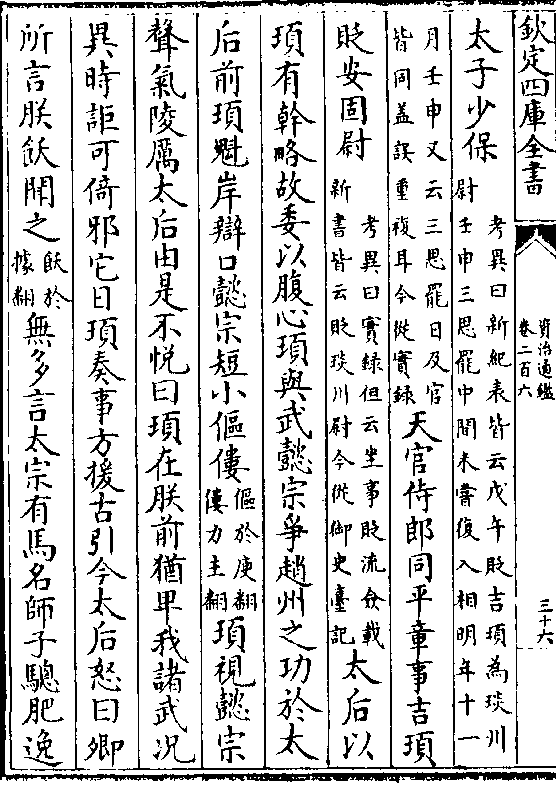 欽定四庫全書
資治通鑑
卷二百六
三十六
太子少保考異曰新紀表皆云戊午貶吉頊為琰川尉壬申三思罷中間未嘗復入相明年十一
月壬申又云三思罷日及官皆同盖誤重複耳今從實録天官侍郎同平章事吉頊
貶安固尉考異曰實録但云坐事貶流僉載新書皆云貶琰川尉今從御史臺記太后以
頊有幹略故委以腹心頊與武懿宗爭趙州之功於太
后前頊魁岸辯口懿宗短小傴僂傴於庾翻僂力主翻頊視懿宗
聲氣陵厲太后由是不悦曰頊在朕前猶卑我諸武况
異時詎可倚邪它日頊奏事方援古引今太后怒曰卿
所言朕飫聞之飫於據翻無多言太宗有馬名師子驄肥逸